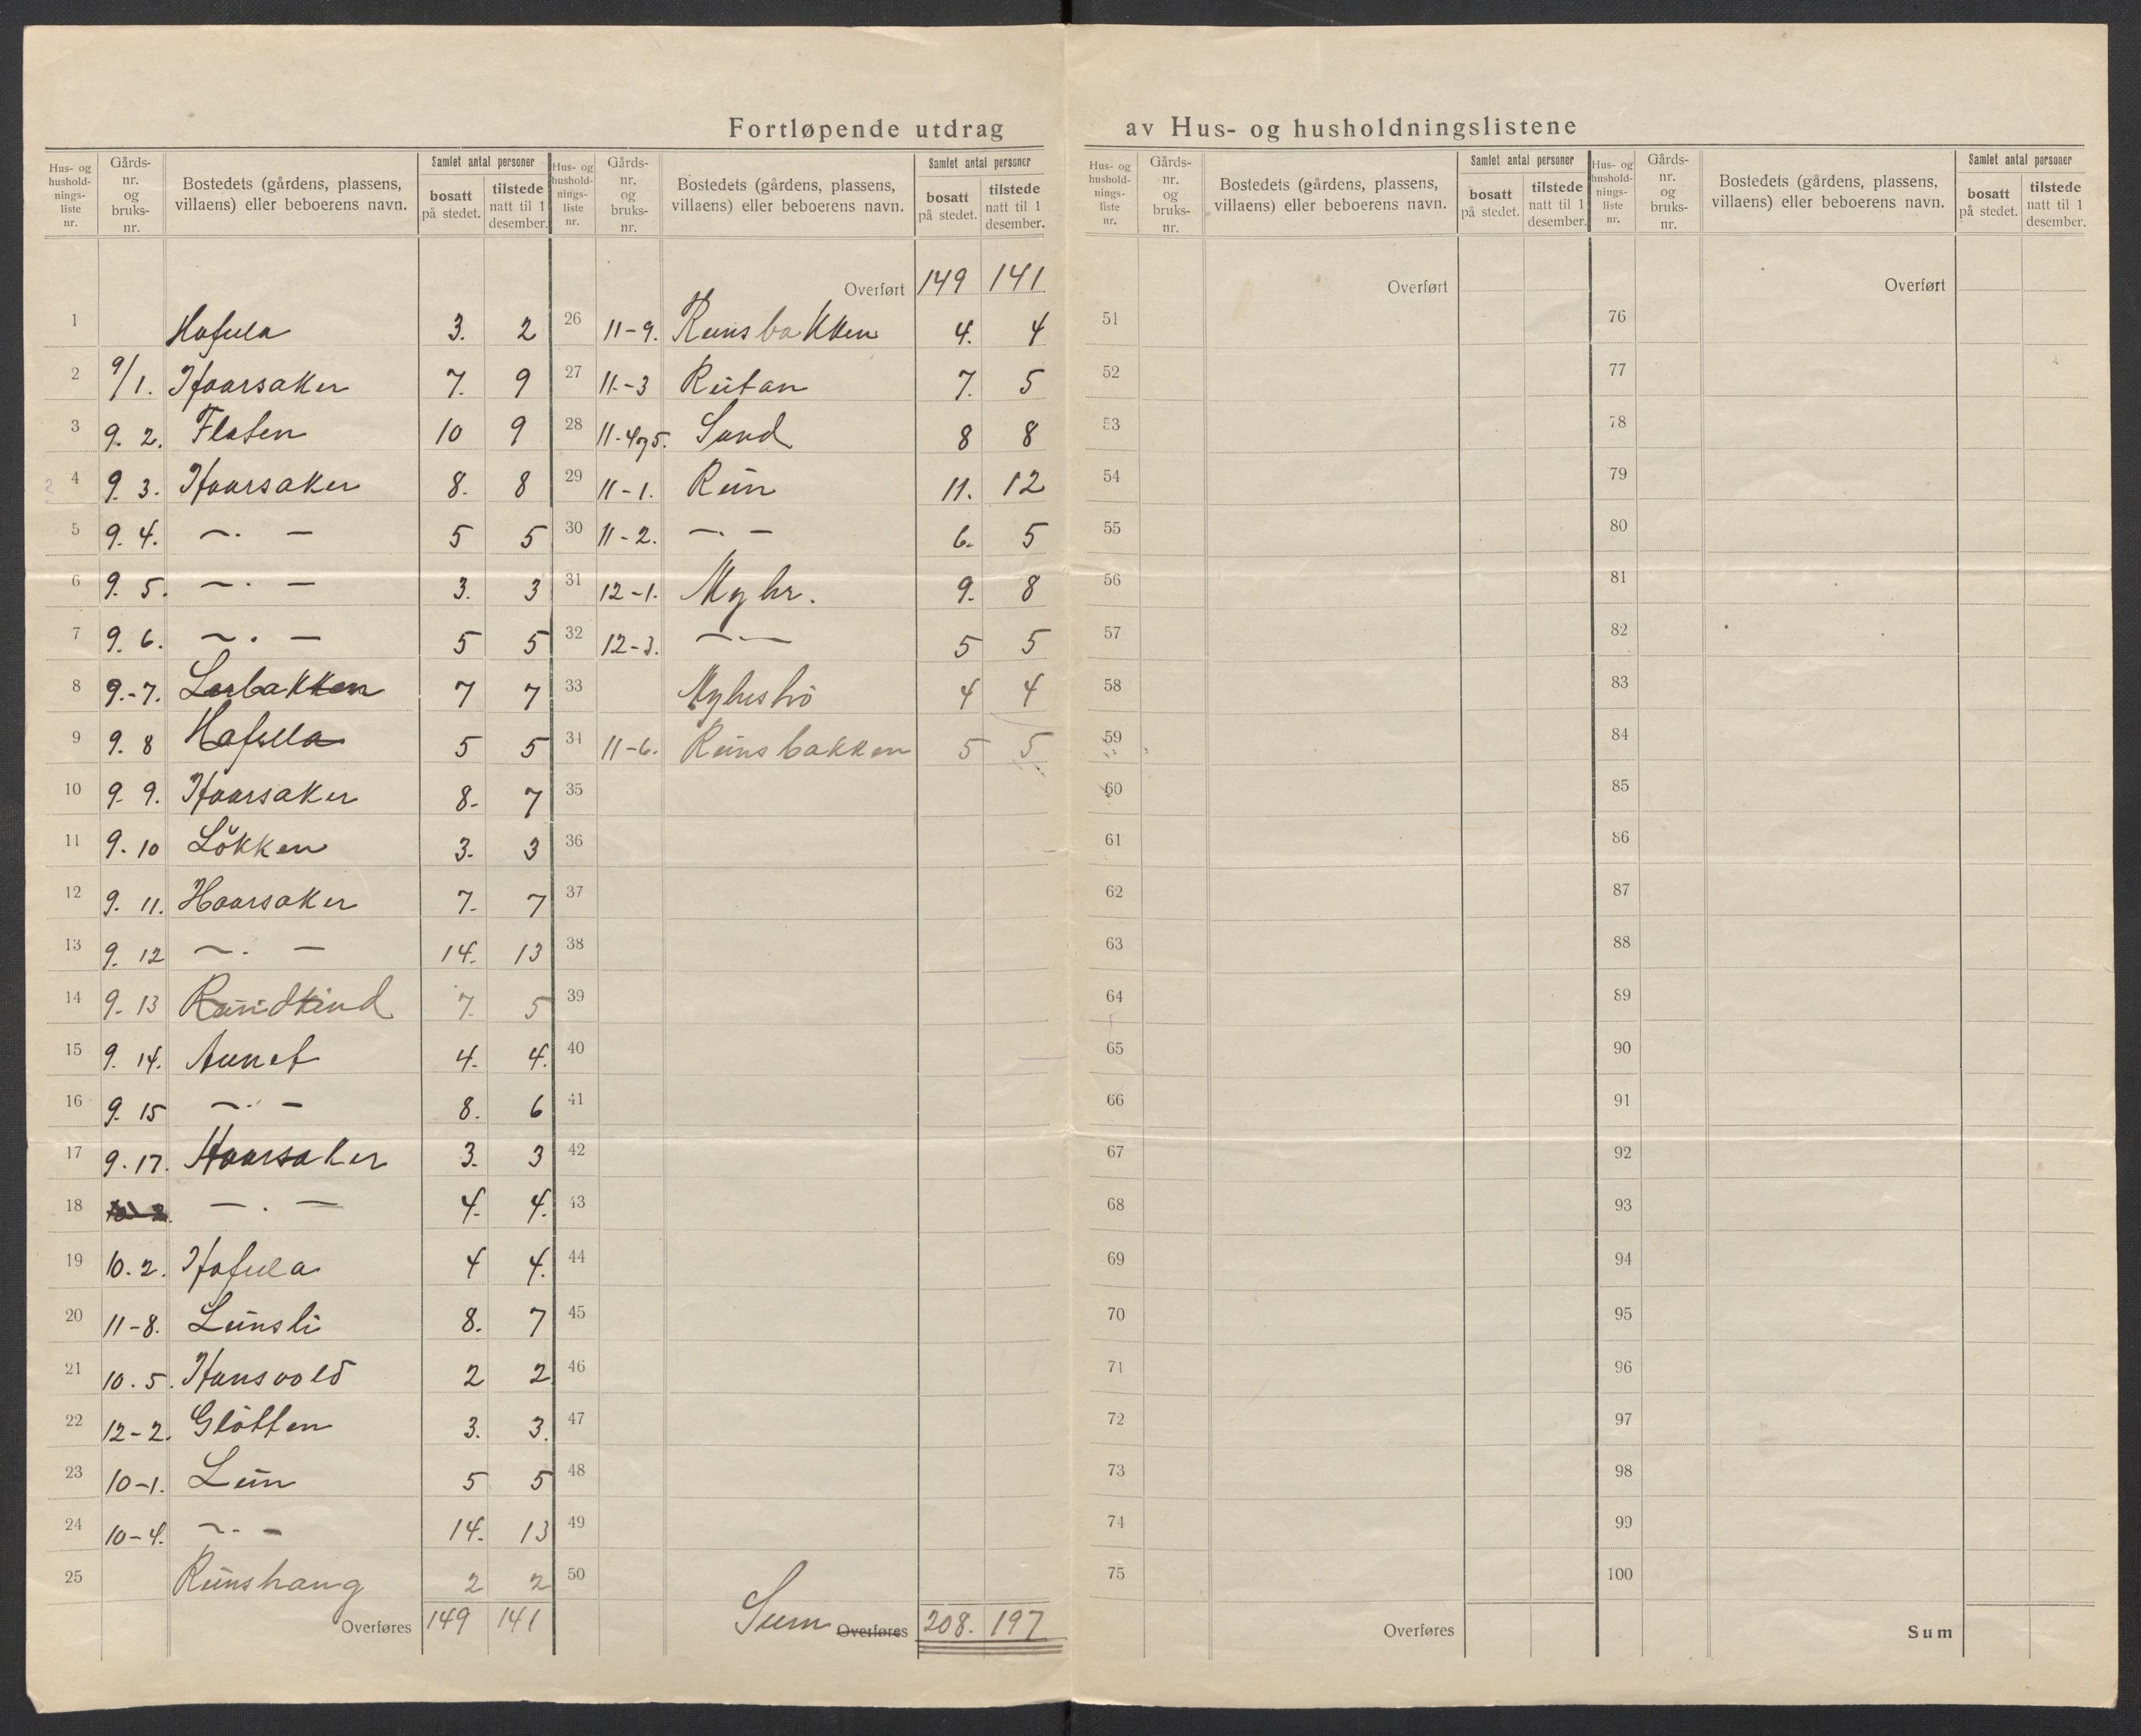 Fortløpende utdrag av Hus- og husholdningslistene
Hus- og hushold-nings-liste nr. | Gårds-nr. og bruks-nr. | Bostedets (gårdens, plassens, villaens) eller beboerens navn. | Samlet antal personer | bosatt på stedet. | tilstede natt til 1 desember.
1 Hafella 3. 2
2 9/1. Haarsaker 7. 9
3 9. 2. Flaten 10 9
4 9. 3. Haarsaker 8. 8
5 9. 4. — . — 5 5
6 9. 5. — . — 3. 3
7 9. 6. — . — 5 5
8 9.-7. Lerbakken 7 7
9 9. 8 Hafella 5 5
10 9. 9. Haarsaker 8. 7
11 9. 10 Løkken 3. 3
12 9. 11. Haarsaker 7. 7
13 9. 12 — . — 14. 13
14 9. 13 7. 5
15 9. 14. Aunet 4. 4.
16 9. 15 — . — 8. 6
17 9. 17. Haarsaker 3. 3
18 — . — 4. 4.
19 10. 2. Hafella 4 4.
20 11-8. Lunsli 8. 7
21 10. 5. Hansvold 2 2
22 12-2. Gløtten 3. 3.
23 10-1. Lun 5 5
24 10-4. — . — 14. 13
25 Runshaug 2 2
Overføres 149 141
Hus- og hushold-nings-liste nr. | Gårds-nr. og bruks-nr. | Bostedets (gårdens, plassens, villaens) eller beboerens navn. | Samlet antal personer | bosatt på stedet. | tilstede natt til 1 desember.
Overført 149 141
26 11-9. Runsbakken 4. 4
27 11-3 Rutan 7. 5
28 11-4og5. Sand 8 8
29 11-1. Run 11. 12
30 11-2. — . — 6. 5
31 12-1. Myhr. 9. 8
32 12-3. — . — 5 5
33 4 4
34 11-6. Runsbakken 5 5
35
36
37
38
39
40
41
42
43
44
45
46
47
48
49
50
Sum Overføres 208. 197
Hus- og hushold-nings-liste nr. | Gårds-nr. og bruks-nr. | Bostedets (gårdens, plassens, villaens) eller beboerens navn. | Samlet antal personer | bosatt på stedet. | tilstede natt til 1 desember.
Overført
51
52
53
54
55
56
57
58
59
60
61
62
63
64
65
66
67
68
69
70
71
72
73
74
75
Overføres
Hus- og hushold-nings-liste nr. | Gårds-nr. og bruks-nr. | Bostedets (gårdens, plassens, villaens) eller beboerens navn. | Samlet antal personer | bosatt på stedet. | tilstede natt til 1 desember.
Overført
76
77
78
79
80
81
82
83
84
85
86
87
88
89
90
91
92
93
94
95
96
97
98
99
100
Sum